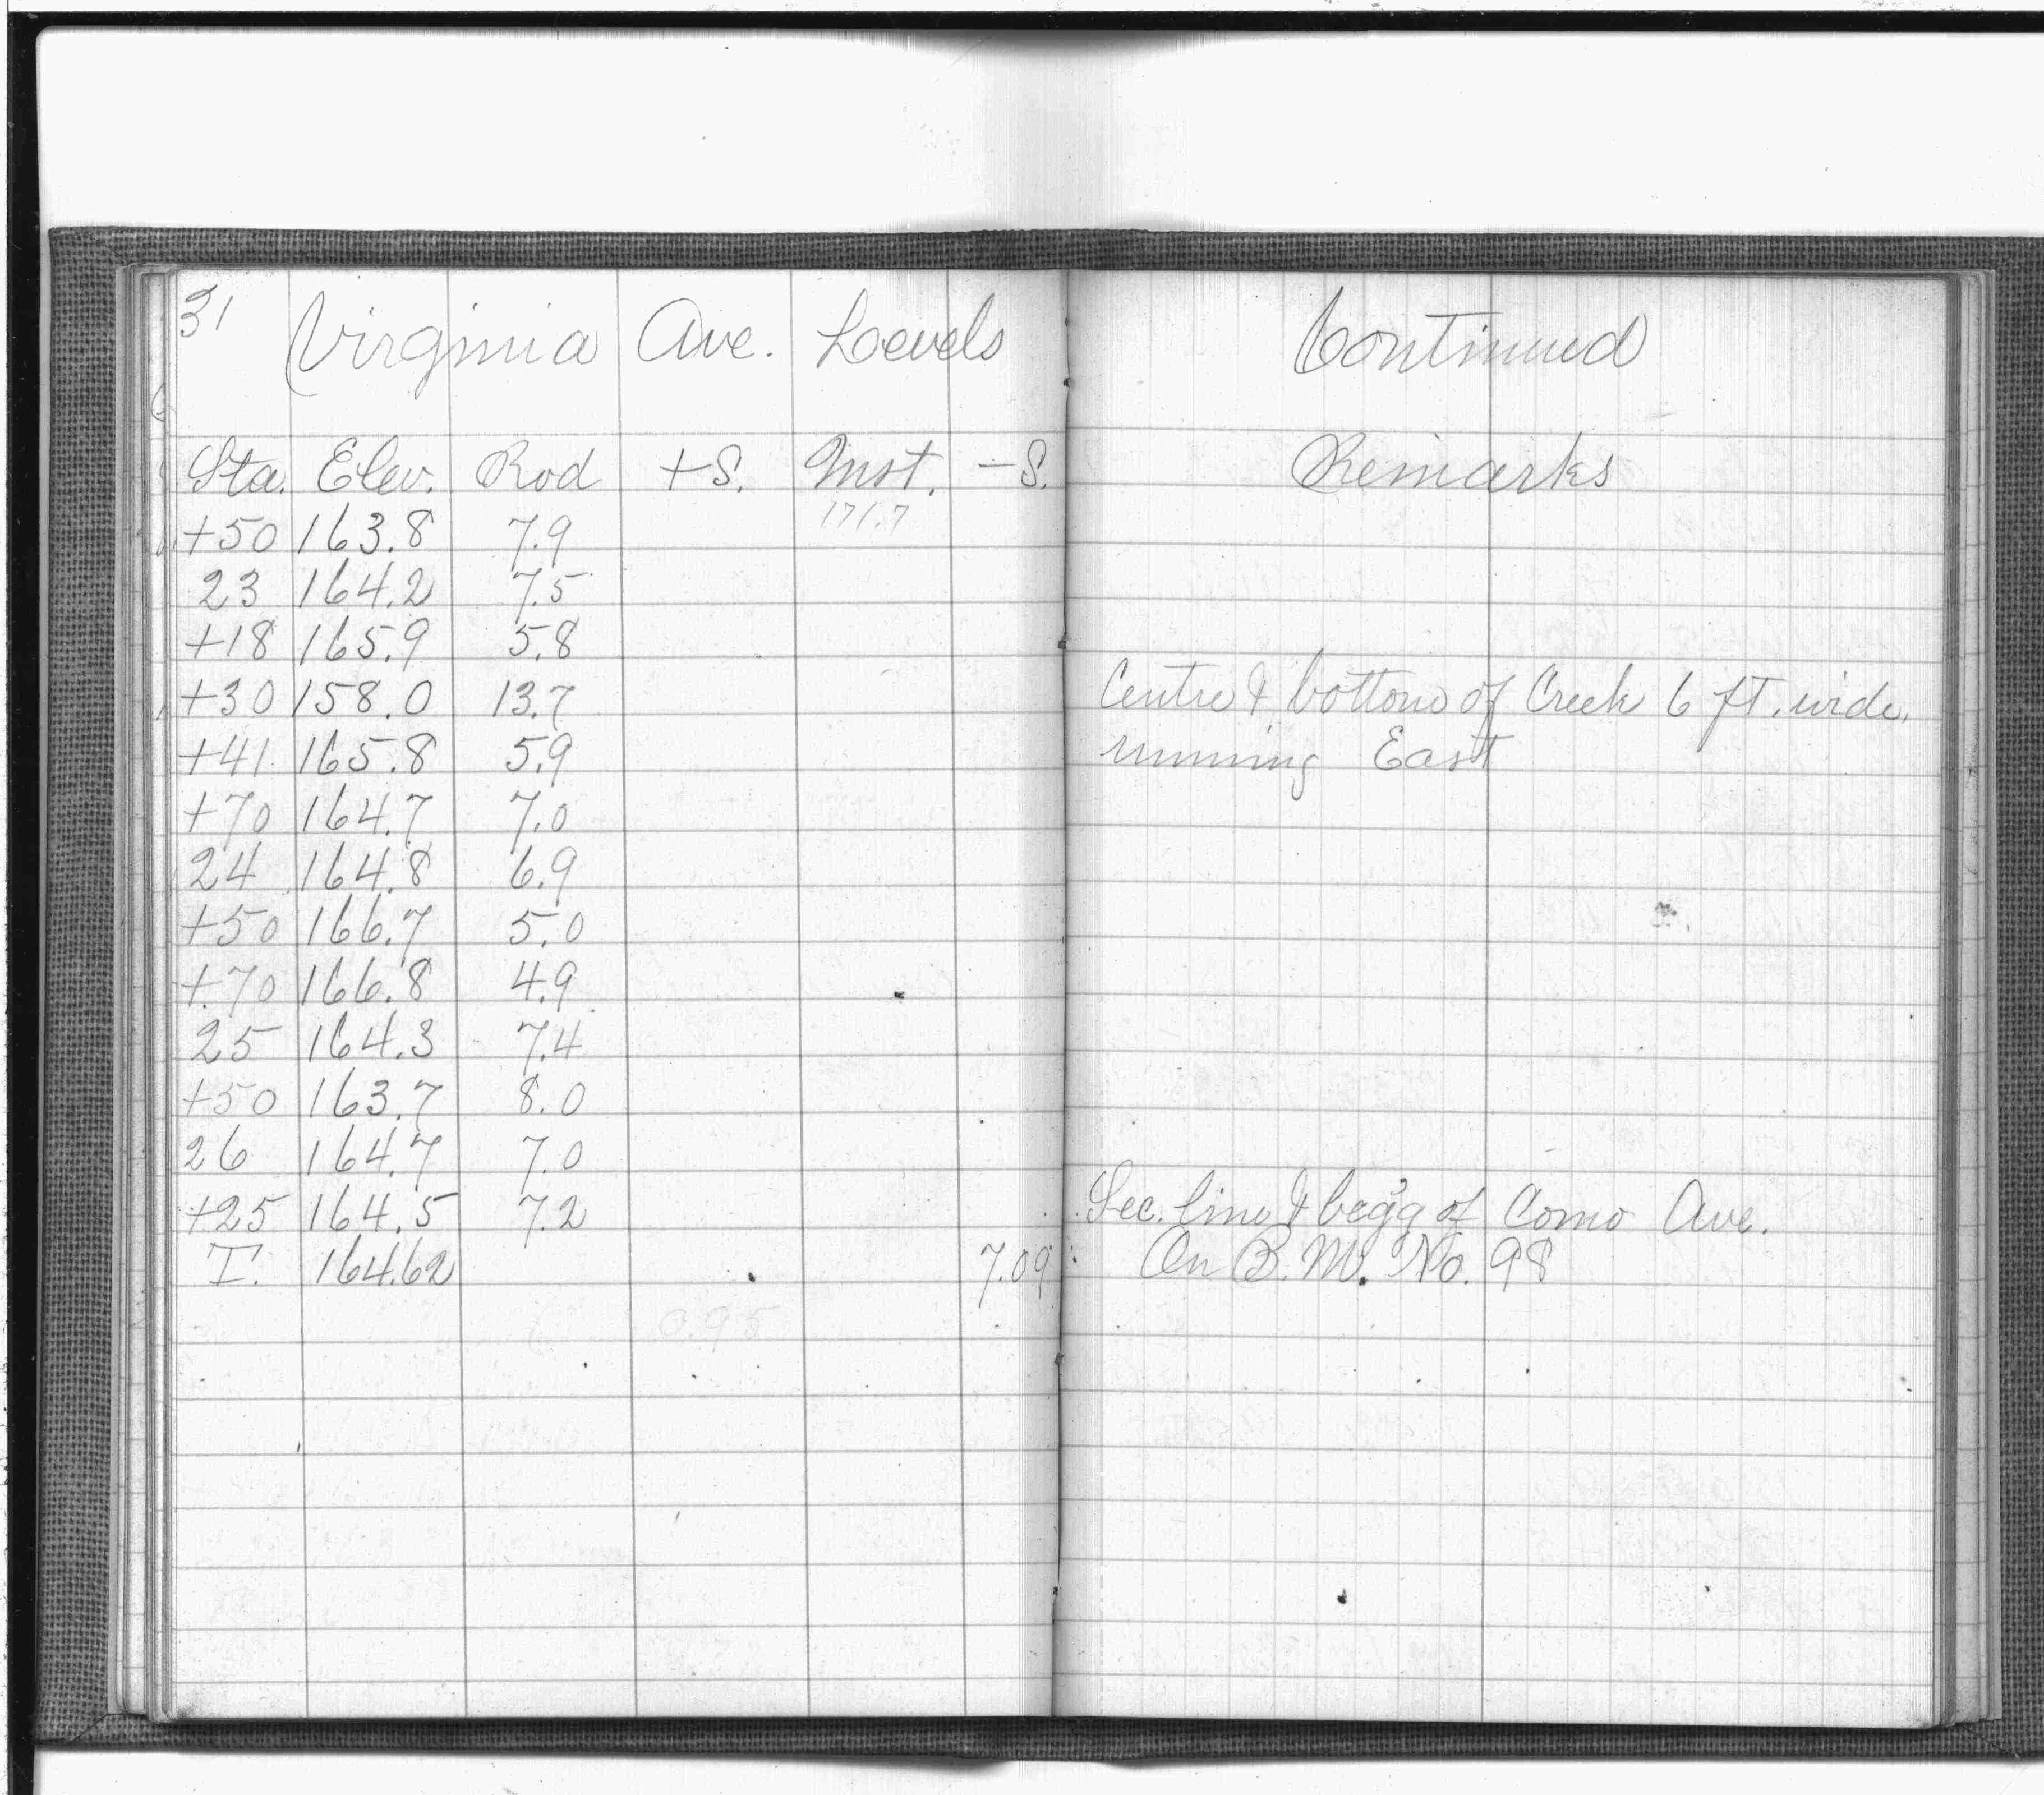 31 Virginia Ave. Levels Continued
Sta. Elev. Rod +S. Inst. -S. Remarks
171.7
+50 163.8 7.9
23 164.2 7.5
+18 165.9 5.8
+30 158.0 13.7 Centre & bottom of Creek 6 ft. wide,
+41 165.8 5.9 running East
+70 164.7 7.0
24 164.8 6.9
+50 166.7 5.0
+70 166.8 4.9
25 164.3 7.4
+50 163.7 8.0
26 164.7 7.0
+25 164.5 7.2 Sec. line & beg'g of Como Ave.
T. 164.62 7.09 On B.M. No. 98
0.95